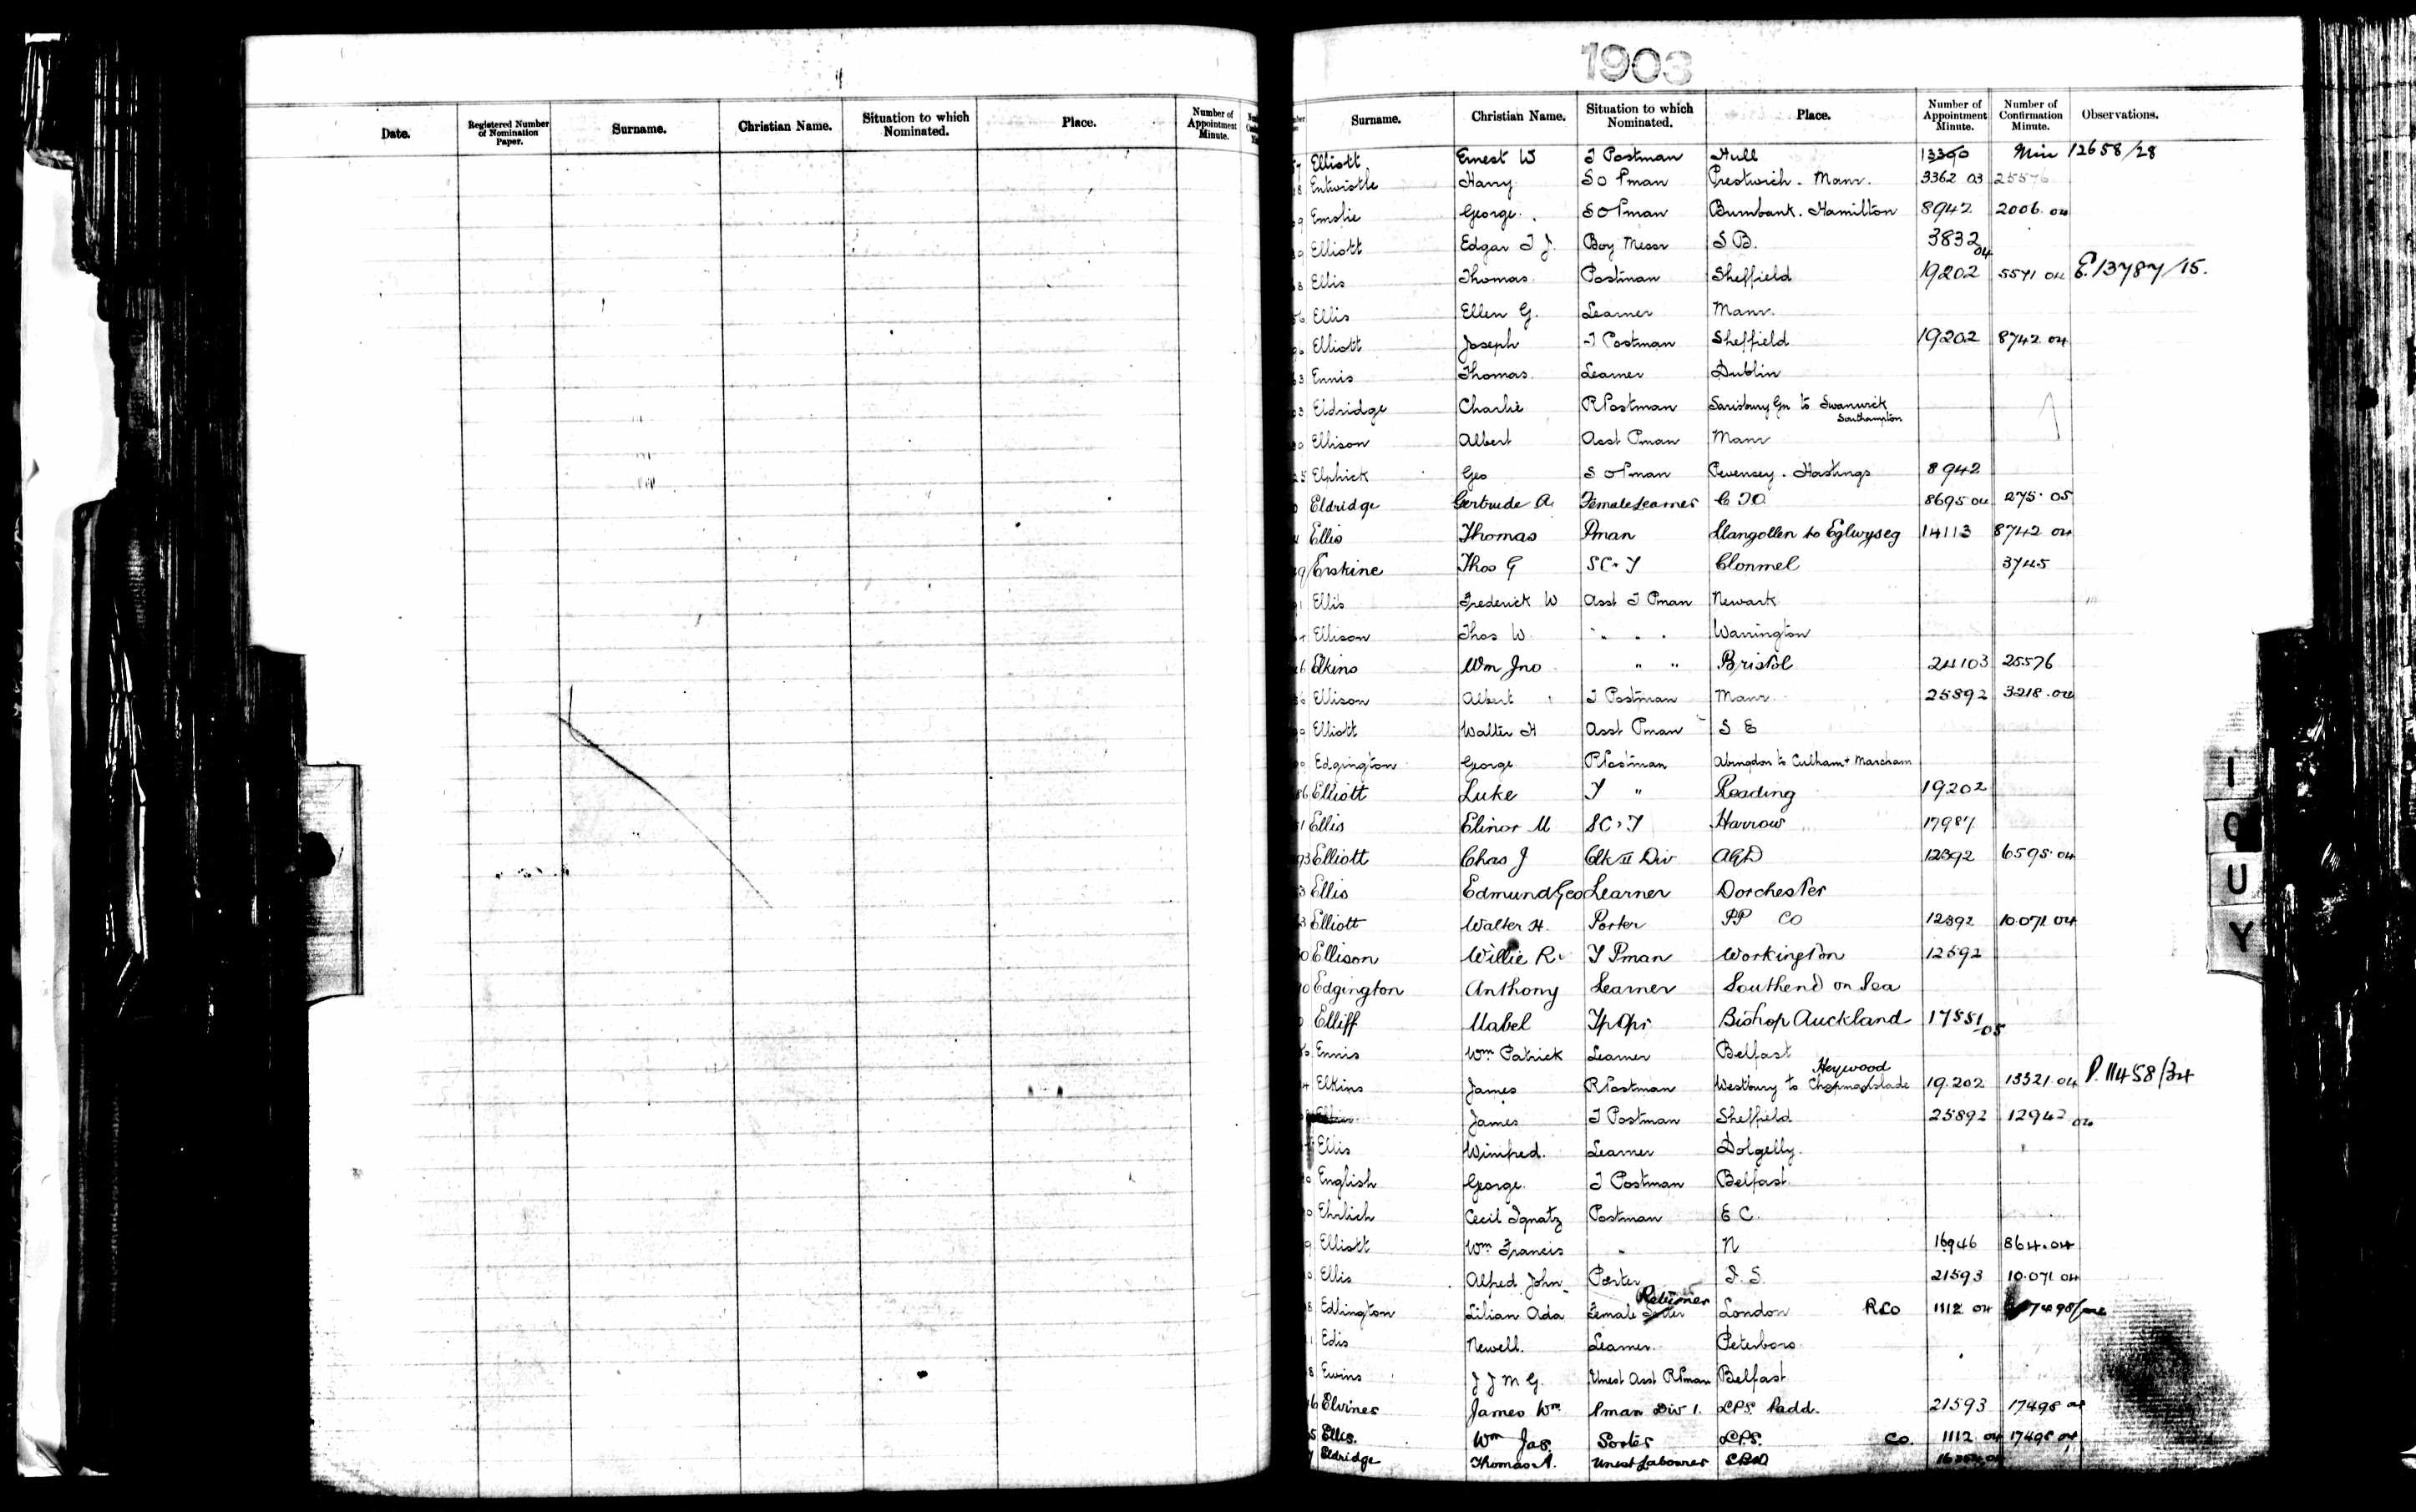 1903
Date. Registered Number of Nomination Paper. Surname. Christian Name. Situation to which Nominated. Place. Number of Appointment Minute.
Surname. Christian Name. Situation to which Nominated. Place. Number of Appointment Minute. Number of Confirmation Minute. Observations.
Elliott Ernest W T Postman Hull 13390 Min 12658/28
Entwistle Harry S O Pman Prestwich. Manr. 3362 03 25576
Emslie George. S O Pman Burnbank. Hamilton 8942 2006. 04
Elliott Edgar T J. Boy Messr S B. 3832 04
Ellis Thomas Postman Sheffield 19202 5571 04 E.13787/15.
Ellis Ellen G. Learner Manr.
Elliott Joseph T Postman Sheffield 19202 8742 04
Ennis Thomas Learner Dublin
Eldridge Charlie R Postman Sarisbury Gn to Swanwick
Southampton
Ellison Albert Asst Pman Manr
Elphick Geo S O Pman Pevensey. Hastings 8942
Eldridge Gertrude A. Female Learner C T O. 8695 04 275. 05
Ellis Thomas Pman Llangollen to Eglwyseg 14113 8742 04
Erskine Thos G SC & T Clonmel 3745
Ellis Frederick W Asst T Pman Newark
Ellison Thos W. " " " Warrington
Elkins Wm Jno " " Bristol 24103 25576
Ellison Albert T Postman Manr 25892 3218.04
Elliott Walter H Asst Pman S E
Edgington George R Postman Abingdon to Culham & Marcham
Elliott Luke T " Reading 19202
Ellis Elinor M SC & T Harrow 17987
Elliott Chas J Clk II Div AGD 12392 6595.04
Ellis Edmund Geo Learner Dorchester
Elliott Walter H. Porter PP CO 12392 10.071 04
Ellison Willie R. T Pman Workington 12592
Edgington Anthony Learner Southend on Sea
Elliff Mabel Tp Opr Bishop Auckland 17551 05
Ennis Wm Patrick Learner Belfast
Heywood
Elkins James R Postman Westbury to Chapmanslade 19.202 13321.04 P.11458/34
James T Postman Sheffield 25892 12942 04
Ellis Winifred. Learner Dolgelly.
English George T Postman Belfast
Ehrlich Cecil Ignatz Postman E C.
Elliott Wm Francis " N 16946 864.04
Ellis Alfred John Porter S. S. 21593 10.071 04
Returner
Edlington Lilian Ada Female Sorter London RLO 1112 04
Edis Newell. Learner. Peterboro
Ewins J J M G. Unest Asst R Pman Belfast
Elvines James Wm Pman Div 1. LPS. Padd. 21593 17498 04
Ellis. Wm Jas. Sorter LPS. CO. 1112 04 17498 04
Eldridge Thomas A. Unest Labourer
I
Q
U
Y